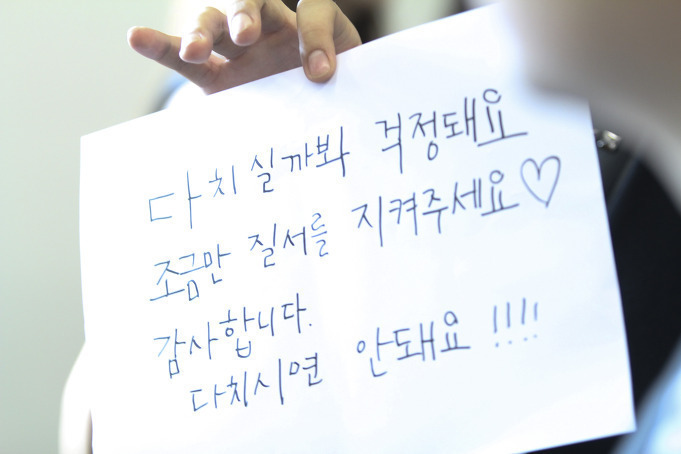 다치실까봐 걱정돼요
조금만 질서를 지켜주세요♡
감사합니다.
다치시면 안돼요 !!!!